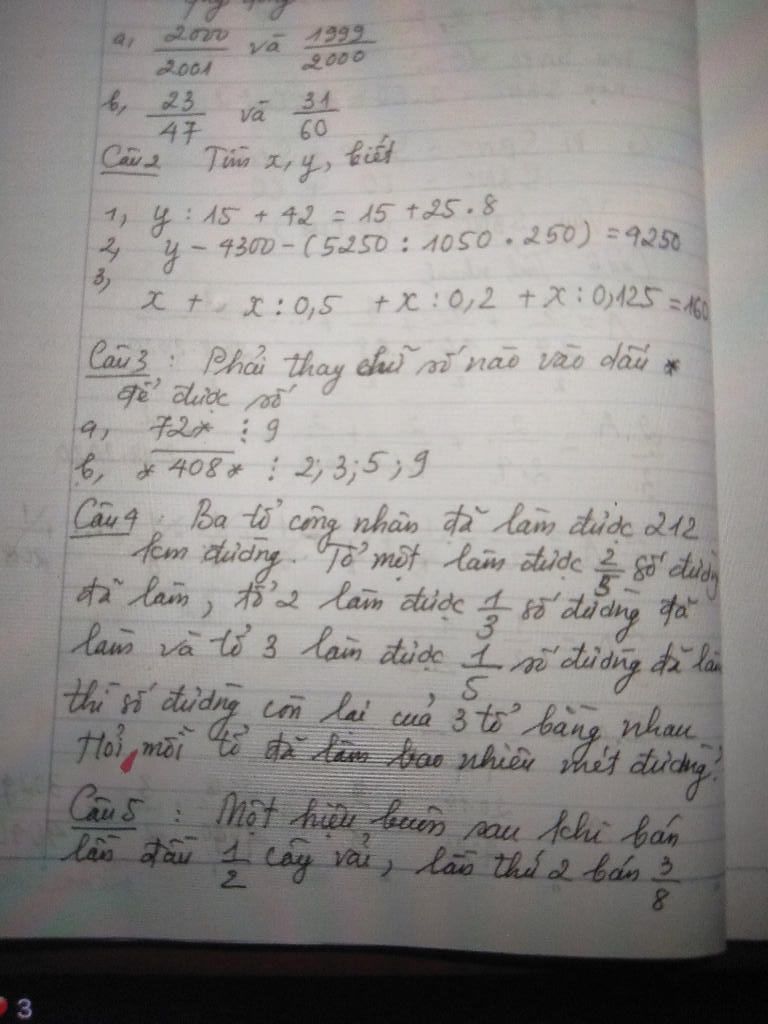 a, 2000/2001 và 1999/2000
b, 23/47 và 31/60
Câu 2 Tìm x, y, biết
1, y : 15 + 42 = 15 + 25 . 8
2, y - 4300 - (5250 : 1050 . 250) = 4250
3,
x + x : 0,5 + x : 0,2 + x : 0,125 = 160
Câu 3 : Phải thay chữ số nào vào dấu *
để được số
a, 72* ⋮ 9
b, *408* ⋮ 2; 3; 5; 9
Câu 4 : Ba tổ công nhân đã làm được 212
km đường. Tổ một làm được 2/5 số đường
đã làm, tổ 2 làm được 1/3 số đường đã
làm và tổ 3 làm được 1/5 số đường đã làm
thì số đường còn lại của 3 tổ bằng nhau
Hỏi mỗi tổ đã làm bao nhiêu mét đường?
Câu 5 : Một hiệu buôn sau khi bán
lần đầu 1/2 cây vải, lần thứ 2 bán 3/8
3